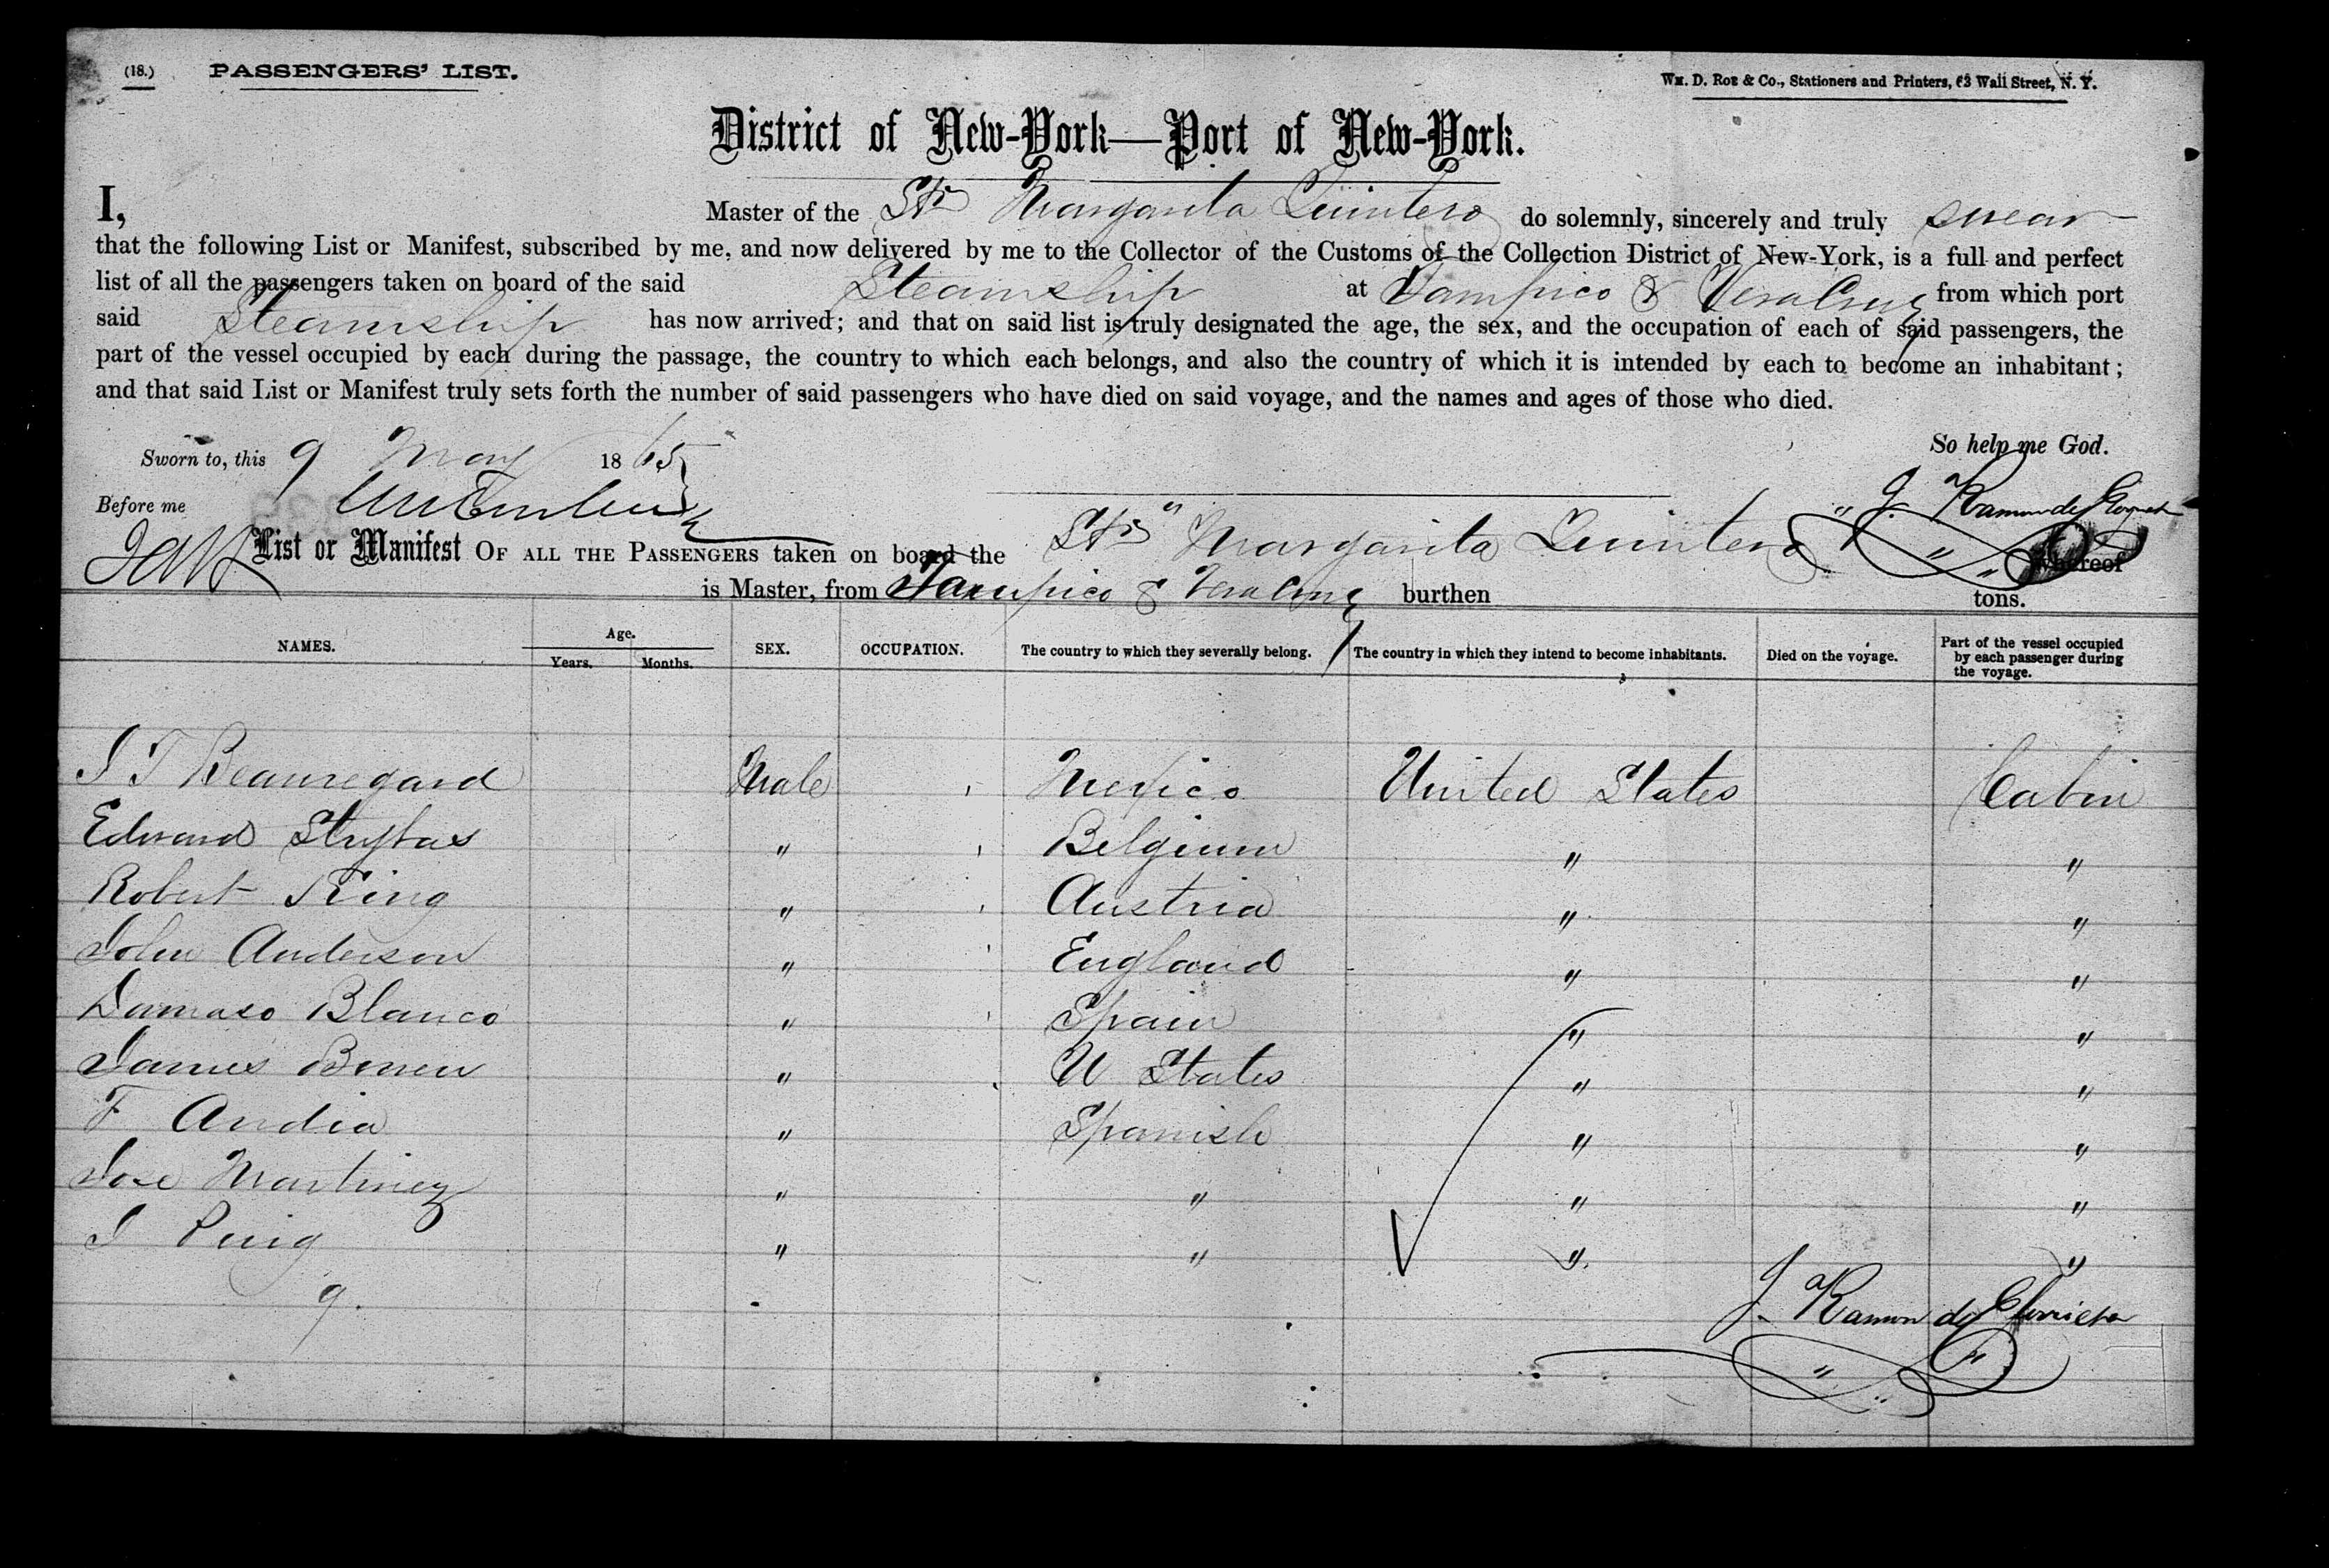 (18.) PASSENGERS' LIST. Wm. D. Roe & Co., Stationers and Printers, 63 Wall Street, N. Y.
District of New-York—Port of New-York.
I, Master of the Str Margarita Quintero do solemnly, sincerely and truly swear
that the following List or Manifest, subscribed by me, and now delivered by me to the Collector of the Customs of the Collection District of New-York, is a full and perfect
list of all the passengers taken on board of the said Steamship at Tampico & Vera Cruz from which port
said Steamship has now arrived; and that on said list is truly designated the age, the sex, and the occupation of each of said passengers, the
part of the vessel occupied by each during the passage, the country to which each belongs, and also the country of which it is intended by each to become an inhabitant;
and that said List or Manifest truly sets forth the number of said passengers who have died on said voyage, and the names and ages of those who died.
So help me God.
Sworn to, this 9 May 1865
Before me
J. Ramon de
List or Manifest OF ALL THE PASSENGERS taken on board the Str "Margarita Quintero whereof
is Master, from Tampico & Vera Cruz burthen tons.
NAMES. Age. Years. Months. SEX. OCCUPATION. The country to which they severally belong. The country in which they intend to become inhabitants. Died on the voyage. Part of the vessel occupied by each passenger during the voyage.
J T Beauregard Male Mexico United States Cabin
Edward " Belgium " "
Robert King " Austria " "
John Anderson " England " "
Damaso Blanco " Spain " "
James " U States " "
F Andia " Spanish " "
Jose Martinez " " " "
J Puig " " " "
9.
J. Ramon de